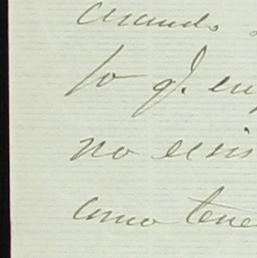 cuando
to q. en
no exis
como tene